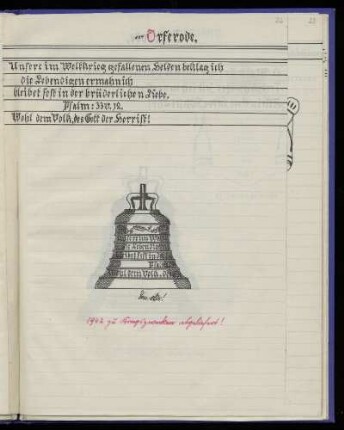 26 23
Orferode.
Unsere im Weltkrieg gefallenen Helden beklag ich
die Lebendigen ermahn ich
bleibet fest in der brüderlichen Liebe.
Psalm: 33 v. 12.
Wohl dem Volk, des Gott der Herr ist!
1942 zu Kriegszwecken abgeliefert!